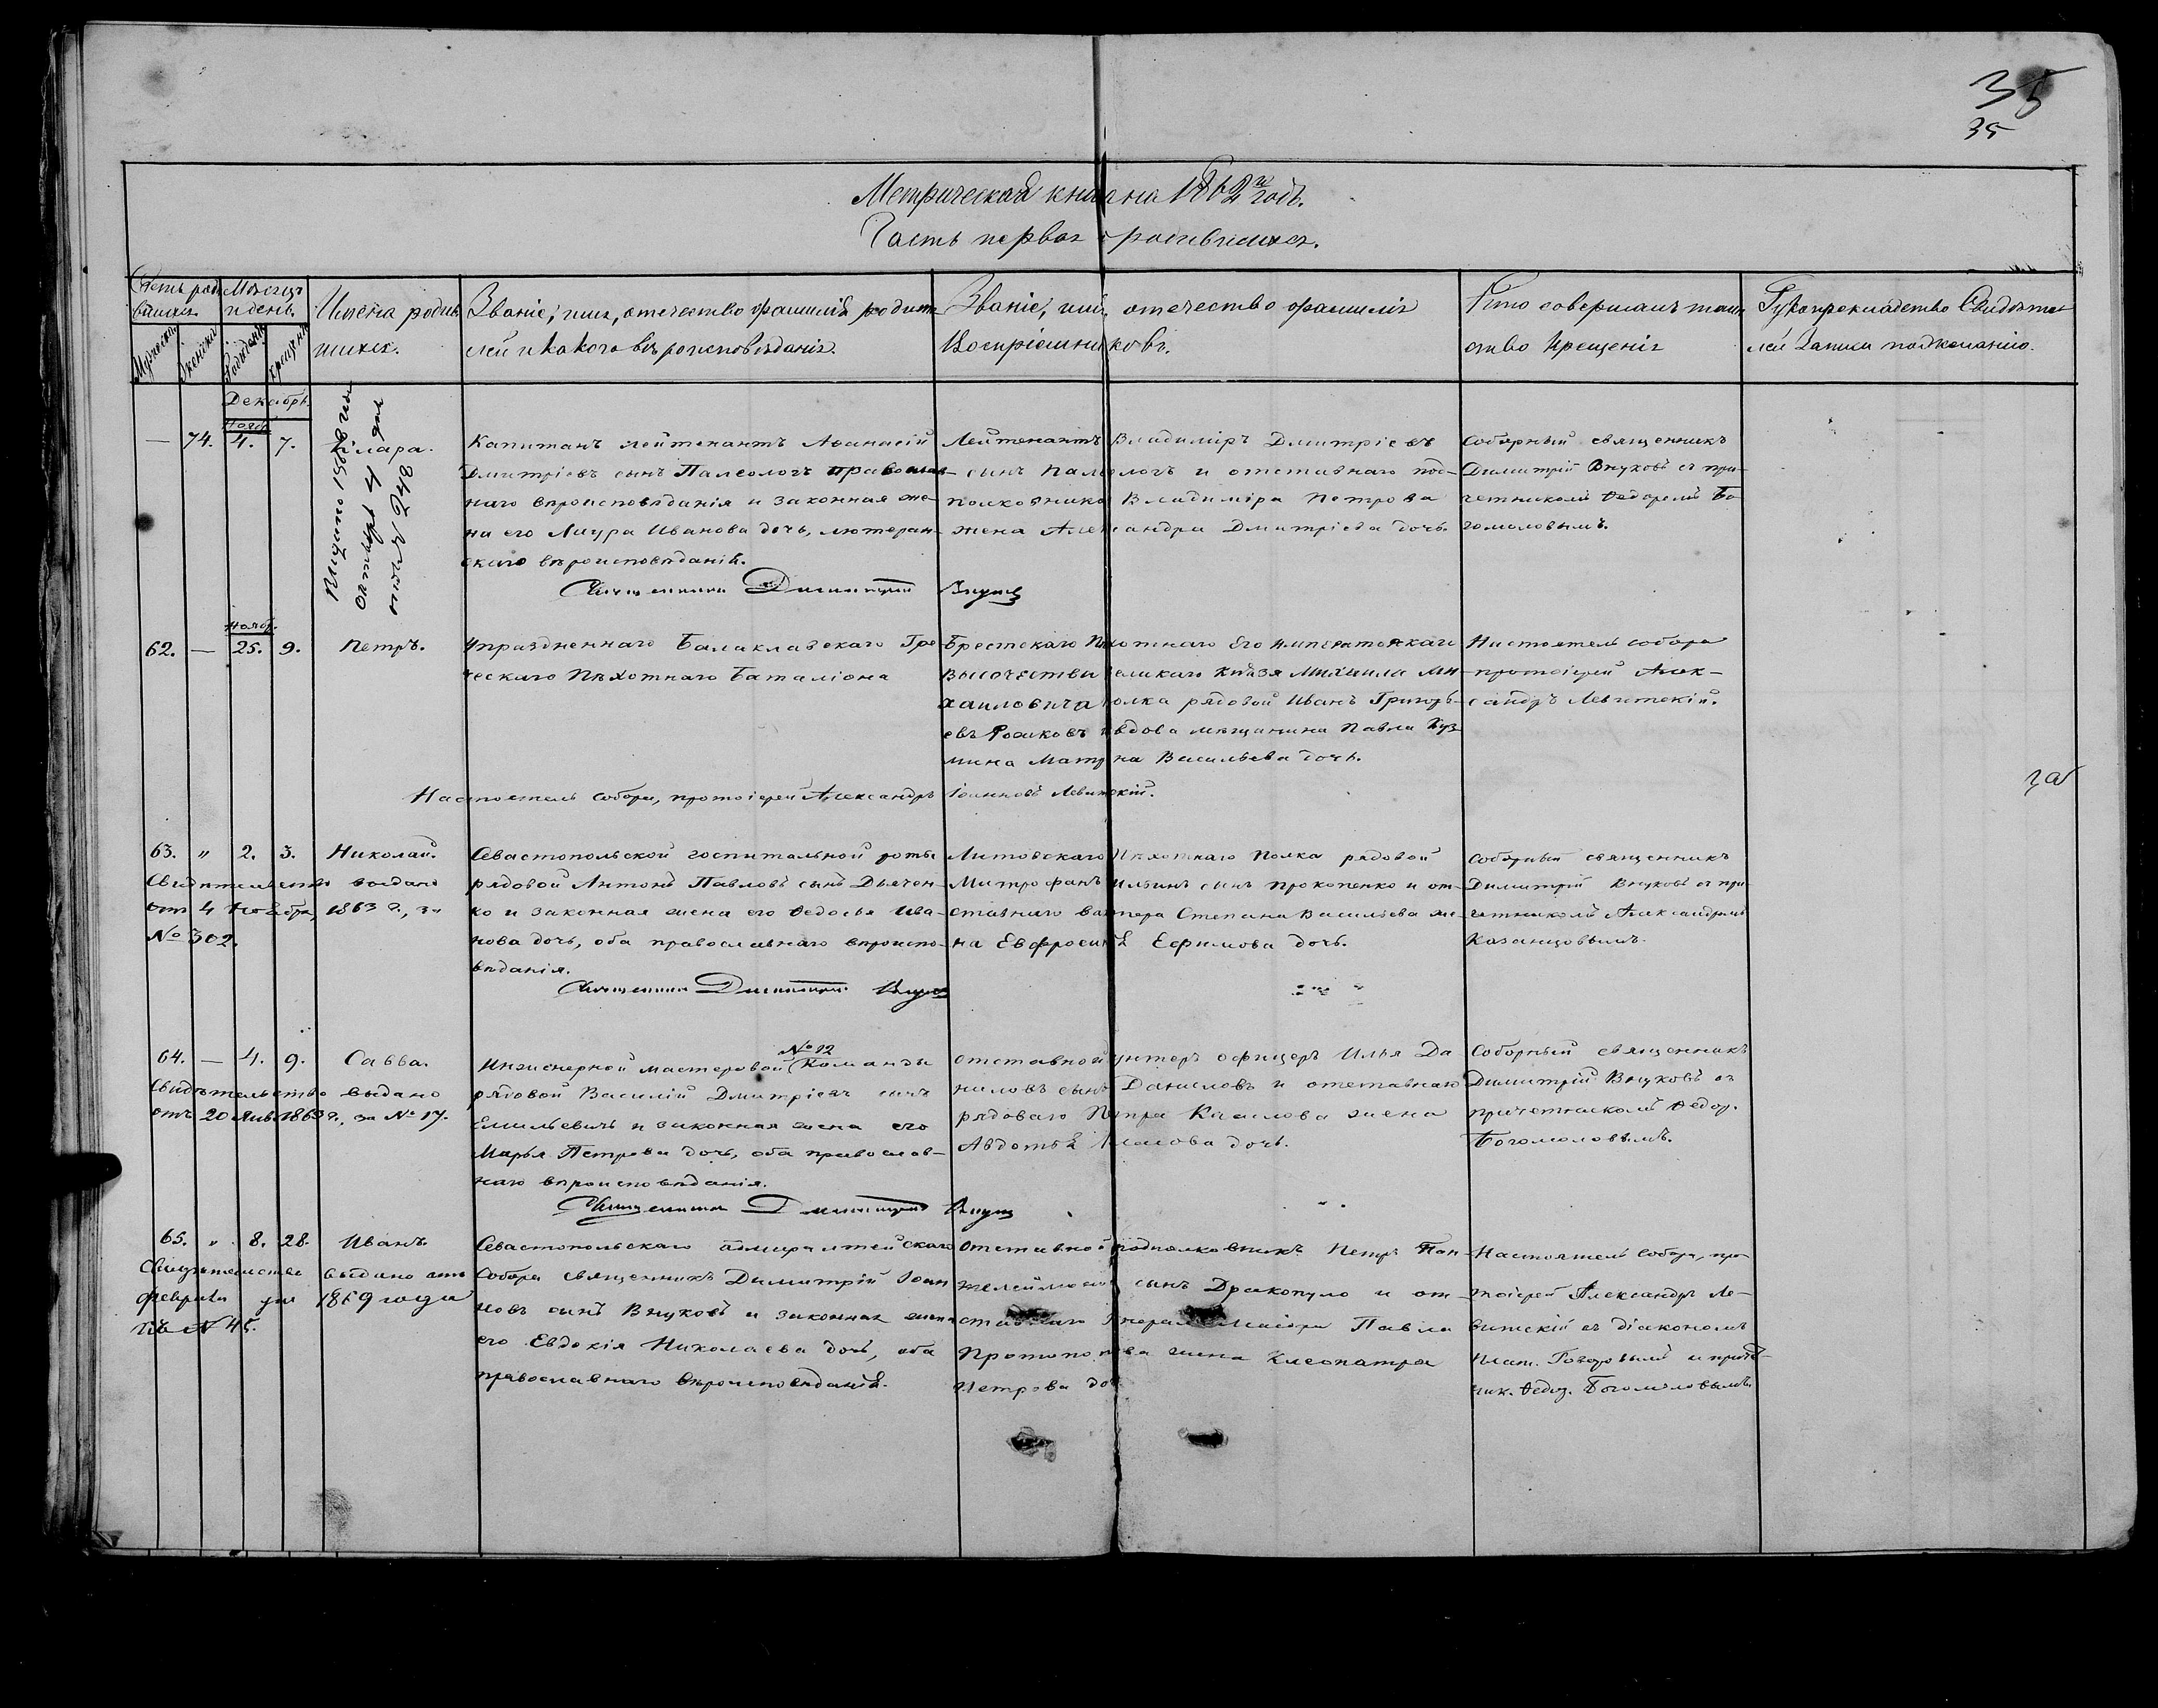 35
35
Метрическая книга на 1862й годъ.
Часть первая о родившихся.
Счетъ роди
вшихся.
Мужеска
Женска
Мѣсяцъ
и день.
Рожденія
Крещенія
Имена родив
шихся.
Званіе, имя, отчество и фамилія родите
лей и какого вѣроисповѣданія.
Званіе, имя, отчество фамилія
Воспріемниковъ.
Кто совершалъ таин
ство Крещенія
Рукоприкладство Свидѣте
лей записи по желанію.
Декабрь
— 74. Нояб. 4. 7.
октября 4 дня
подъ № 248
Капитанъ лейтенантъ Аѳанасій
Дмитріевъ сынъ Палеологъ православ-
наго вѣроисповѣданія и законная же-
на его Лаура Иванова дочь, лютеран-
скаго вѣроисповѣданія.
Священникъ Димитрій Внуковъ
Лейтенантъ Владиміръ Дмитріевъ
сынъ Палеологъ и отставнаго под-
полковника Владиміра Петрова
жена Александра Дмитріева дочь.
Соборный священникъ
Димитрій Внуковъ съ при-
четникомъ Ѳедоромъ Бо-
гомоловымъ.
62. — Нояб. 25. 9. Петръ.
Упраздненнаго Балаклавскаго Гре
ческаго Пѣхотнаго Баталіона
Брестскаго Пѣхотнаго Его Императорскаго
Высочества Великаго Князя Михаила Ми-
хаиловича полка рядовой Иванъ Григорь-
евъ вдова мѣщанина Павла Куз
мина Матрона Васильева дочь.
Настоятель собора
протоіерей Алек-
сандръ Левитскій.
Настоятель собора, протоіерей Александръ Іоанновъ Левитскій.
за
63. " 2. 3. Николай.
Свидѣтельство выдано
отъ 4 Ноября, 1863 г., за
№ 302.
Севастопольской госпитальной роты
рядовой Антонъ Павловъ сынъ Дьячен-
ко и законная жена его Ѳедосья Ива-
нова дочь, оба православнаго вѣроиспо-
вѣданія.
Священникъ Димитрій Внуковъ
Литовскаго Пѣхотнаго полка рядовой
Митрофанъ Ильинъ сынъ Прокопенко и от-
ставнаго Степана Васильева же-
на Евфросинія Ефимова дочь.
Соборный священникъ
Димитрій Внуковъ съ при-
четникомъ Александромъ
Казанцовымъ.
64. — 4. 9. Савва.
Свидѣтельство выдано
отъ 20 Янв. 1863 г., за № 17.
Инженерной мастеровой № 12 Команды
рядовой Василій Дмитріевъ сынъ
Емильевичъ и законная жена его
Марья Петрова дочь, оба православ-
наго вѣроисповѣданія.
Священникъ Димитрій Внуковъ
Отставной унтеръ офицеръ Илья Да
ниловъ сынъ Даниловъ и отставнаго
рядоваго Петра жена
Авдотья дочь.
Соборный священникъ
Димитрій Внуковъ съ
причетникомъ Ѳедор.
Богомоловымъ.
65. " 8. 28. Иванъ.
Свидѣтельство выдано отъ
Февраля дня 1869 года
за № 45.
Севастопольскаго адмиралтейскаго
Собора священникъ Димитрій Іоан
новъ сынъ Внуковъ и законная жена
его Евдокія Николаева дочь, оба
православнаго вѣроисповѣданія.
Отставной подполковникъ Петръ Пан-
сынъ Дракопуло и от-
ставнаго Генералъ Маіора Павла
Протопопова жена Клеопатра
Петрова дочь
Настоятель собора, про
тоіерей Александръ Ле-
витскій съ діакономъ
Плат. и причет-
ник. Ѳедор. Богомоловымъ.